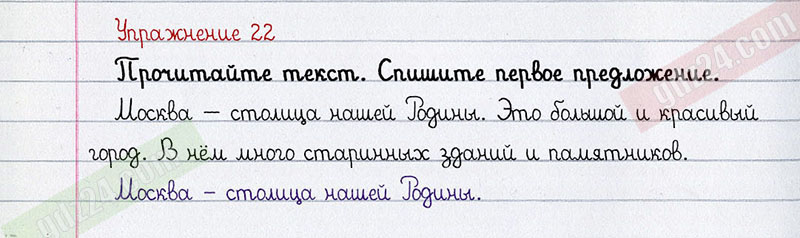 Упражнение 22
Прочитайте текст. Спишите первое предложение.
Москва — столица нашей Родины. Это большой и красивый
город. В нём много старинных зданий и памятников.
Москва – столица нашей Родины.
yii24.com
yii24.com